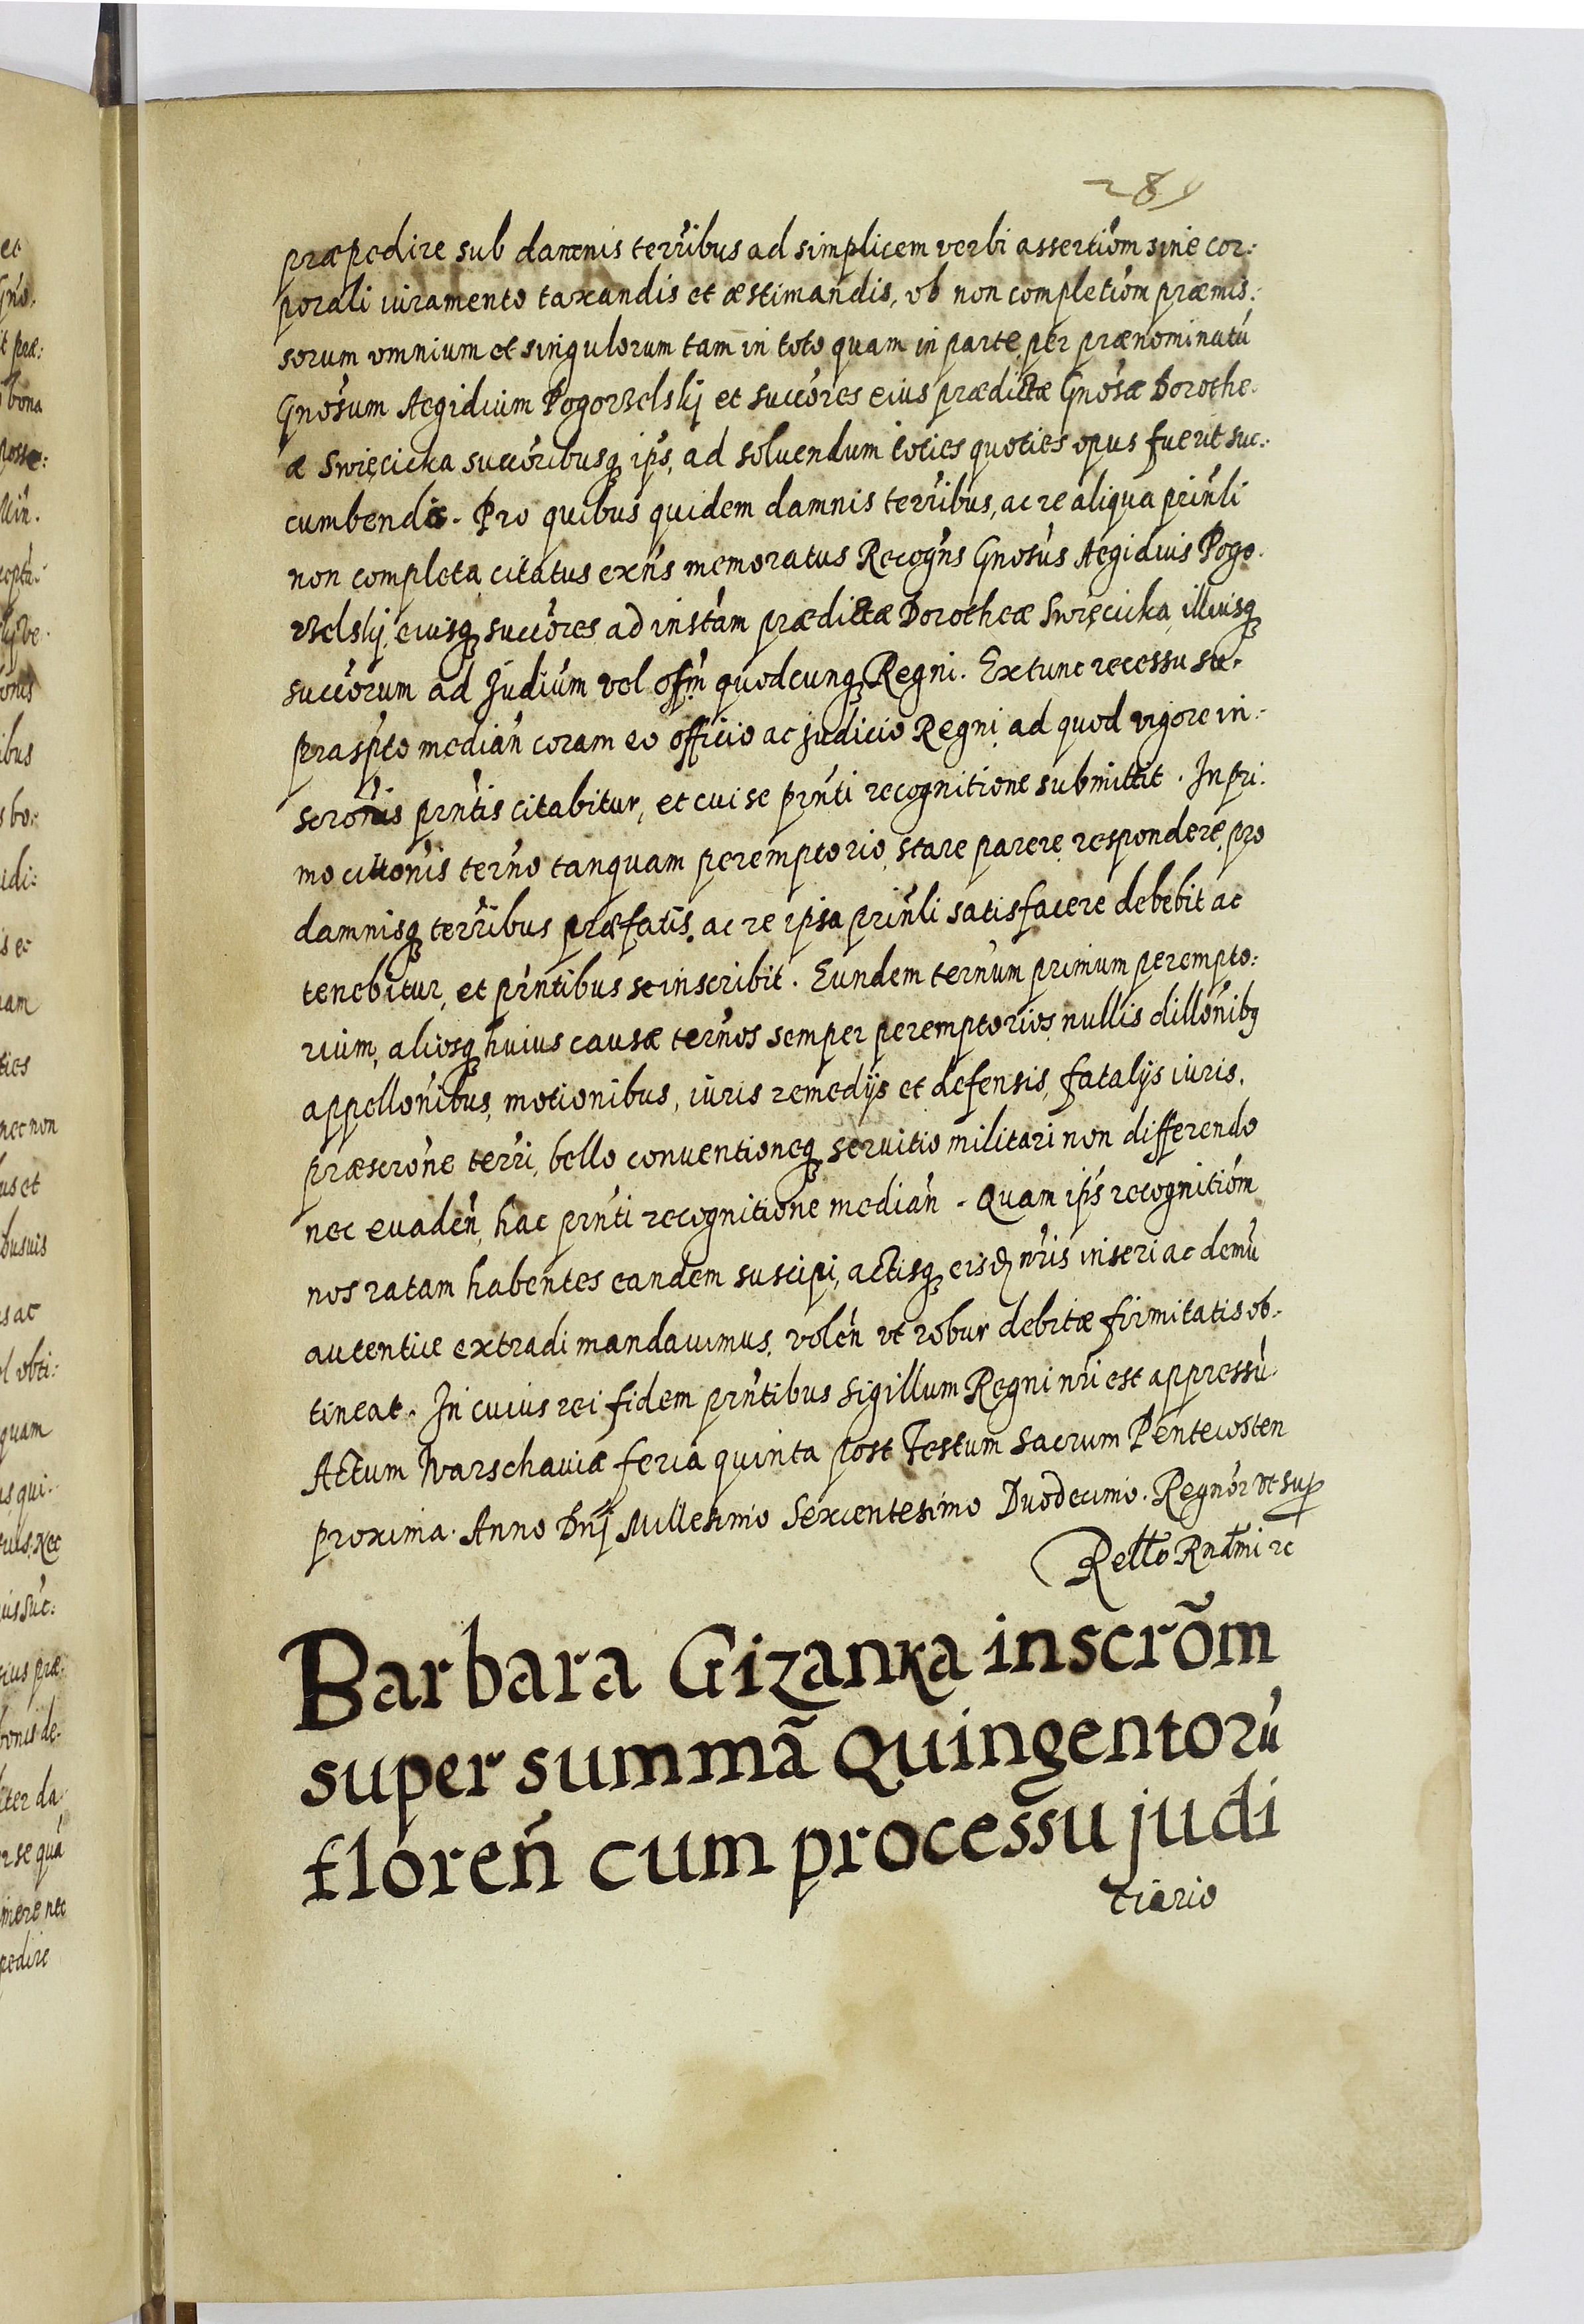 289
præpedire sub damnis terribus ad simplicem verbi assertiom sine cor:
porali iuramento taxandis et æstimandis, ob non completiom præmis:
sorum omnium et singulorum tam in toto quam in parte per prænominatū
Gnosum Aegidium Pogorzelskij et succōres eius prædictæ Gnosæ Dorothe.
æ Swięcicka succoribusq ips, ad soluendum toties quoties opus fuerit suc:
cumbendis. Pro quibus quidem damnis terribus, ac re aliqua prinli
non completa citatus exns memoratus Recogns Gnosus Aegidius Pogo.
rzelskij, eiusq succōres ad instam prædictæ Dorotheæ Swięcicka, illiusq
succorum ad Judium vel offm quodcunq Regni. Extunc recessu su.
prasp̃to median coram eo officio ac judicio Regni ad quod vigore in:
scronis prntis citabitur, et cui se prnti recognitione submittit. In pri:
mo cittonis terno tanquam peremptorio, stare parere respondere, pro
damnisq terribus præfatis, ac re ipsa prinli satisfacere debebit ac
tenebitur, et prntibus se inscribit. Eundem ternum primum perempto:
rium, aliosq huius causæ ternos semper peremptorios nullis dillonibq
appellonibus, motionibus, iuris remedijs et defensis, fatalijs iuris,
præscrone terri, bello conventioneq servitio militari non differendo
nec evaden, hac prnti recognitione median. Quam ips recognitiom
nos ratam habentes eandem suscipi, actisq eisd nris inseri ac demū
autentice extradi mandavimus, volen vt robur debitæ firmitatis ob:
tineat. In cuius rei fidem prntibus Sigillum Regni nri est appressū.
Actum Warschaviæ feria quinta post Festum Sacrum Pentecosten
proxima. Anno Dnj Millesimo Sexcentesimo Duodecimo. Regnor vt sup
Retto Rndmi rc
Barbara Gizanka inscrõm
super summã Quingentorū
floreñ cum processu judi
ciario